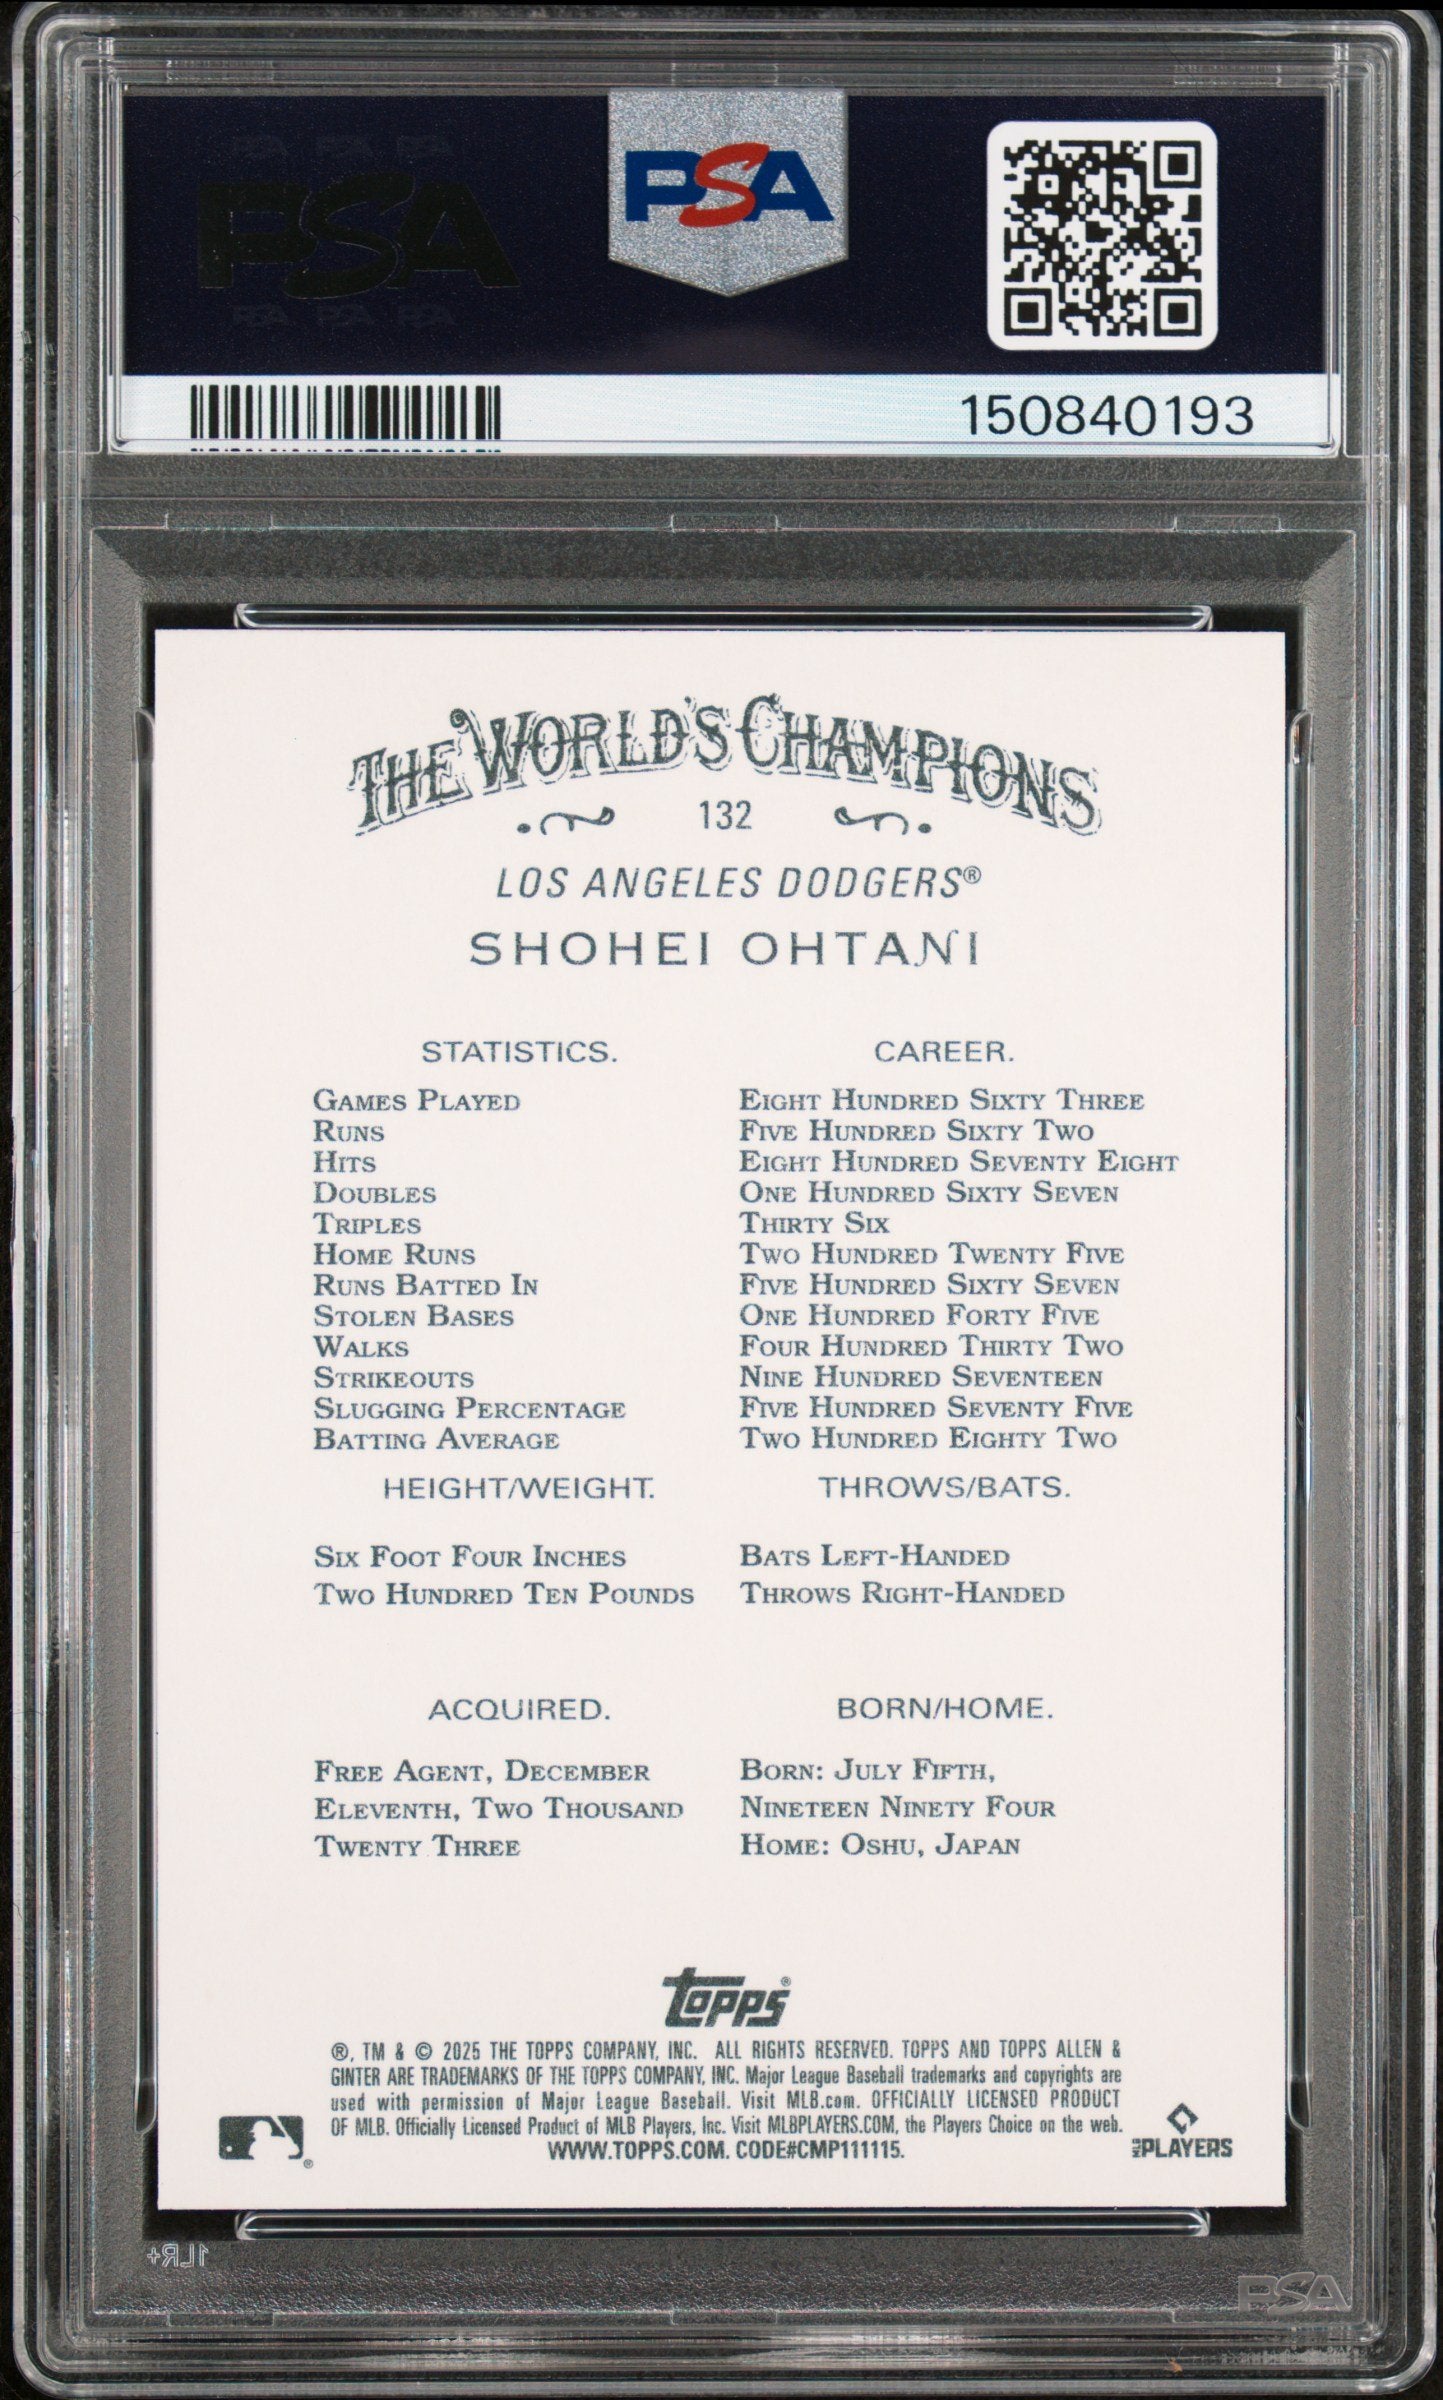 PSA PSA PSA
PSA
PSA PSA PSA
PSA
150840193
THE WORLD'S CHAMPIONS
132
LOS ANGELES DODGERS®
SHOHEI OHTANI
STATISTICS. CAREER.
GAMES PLAYED EIGHT HUNDRED SIXTY THREE
RUNS FIVE HUNDRED SIXTY TWO
HITS EIGHT HUNDRED SEVENTY EIGHT
DOUBLES ONE HUNDRED SIXTY SEVEN
TRIPLES THIRTY SIX
HOME RUNS TWO HUNDRED TWENTY FIVE
RUNS BATTED IN FIVE HUNDRED SIXTY SEVEN
STOLEN BASES ONE HUNDRED FORTY FIVE
WALKS FOUR HUNDRED THIRTY TWO
STRIKEOUTS NINE HUNDRED SEVENTEEN
SLUGGING PERCENTAGE FIVE HUNDRED SEVENTY FIVE
BATTING AVERAGE TWO HUNDRED EIGHTY TWO
HEIGHT/WEIGHT. THROWS/BATS.
SIX FOOT FOUR INCHES BATS LEFT-HANDED
TWO HUNDRED TEN POUNDS THROWS RIGHT-HANDED
ACQUIRED. BORN/HOME.
FREE AGENT, DECEMBER BORN: JULY FIFTH,
ELEVENTH, TWO THOUSAND NINETEEN NINETY FOUR
TWENTY THREE HOME: OSHU, JAPAN
topps®
®, TM & © 2025 THE TOPPS COMPANY, INC. ALL RIGHTS RESERVED. TOPPS AND TOPPS ALLEN &
GINTER ARE TRADEMARKS OF THE TOPPS COMPANY, INC. Major League Baseball trademarks and copyrights are
used with permission of Major League Baseball. Visit MLB.com. OFFICIALLY LICENSED PRODUCT
OF MLB. Officially Licensed Product of MLB Players, Inc. Visit MLBPLAYERS.COM, the Players Choice on the web.
WWW.TOPPS.COM. CODE#CMP111115.
®
MLB PLAYERS
1LR+
PSA